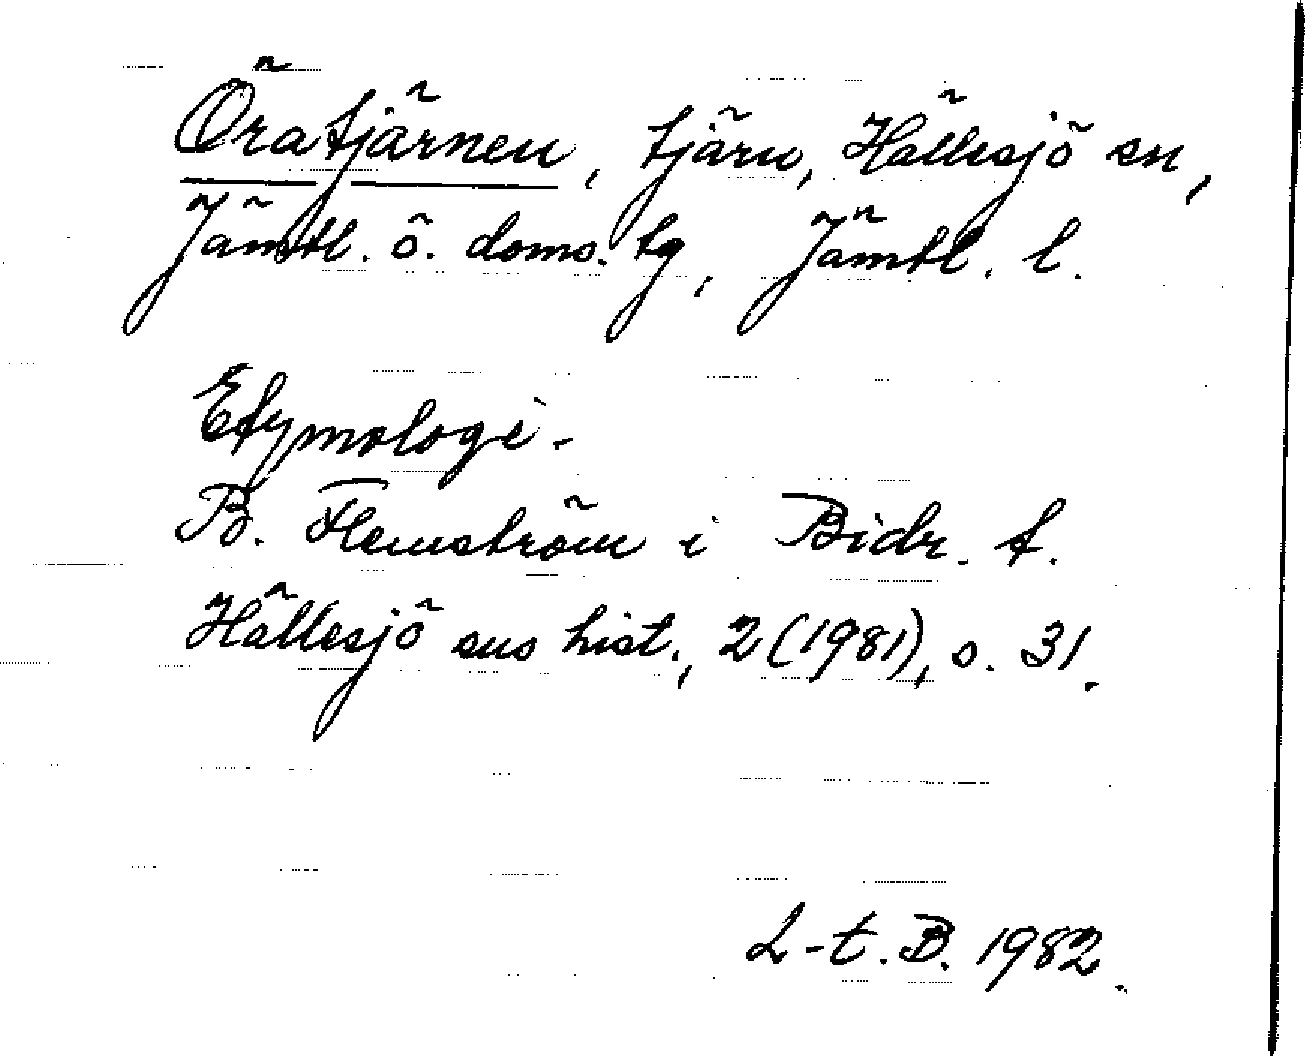 Öratjärnen, tjärn, Hällesjö sn,
Jämtl. ö. doms. tg, Jämtl. l.
Etymologi.
B. Flemström i Bidr. t.
Hällesjö sns hist., 2 (1981), s. 31.
L-t. B. 1982.